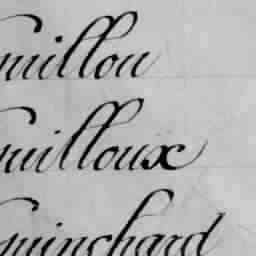 uillou
uilloux
uinchard